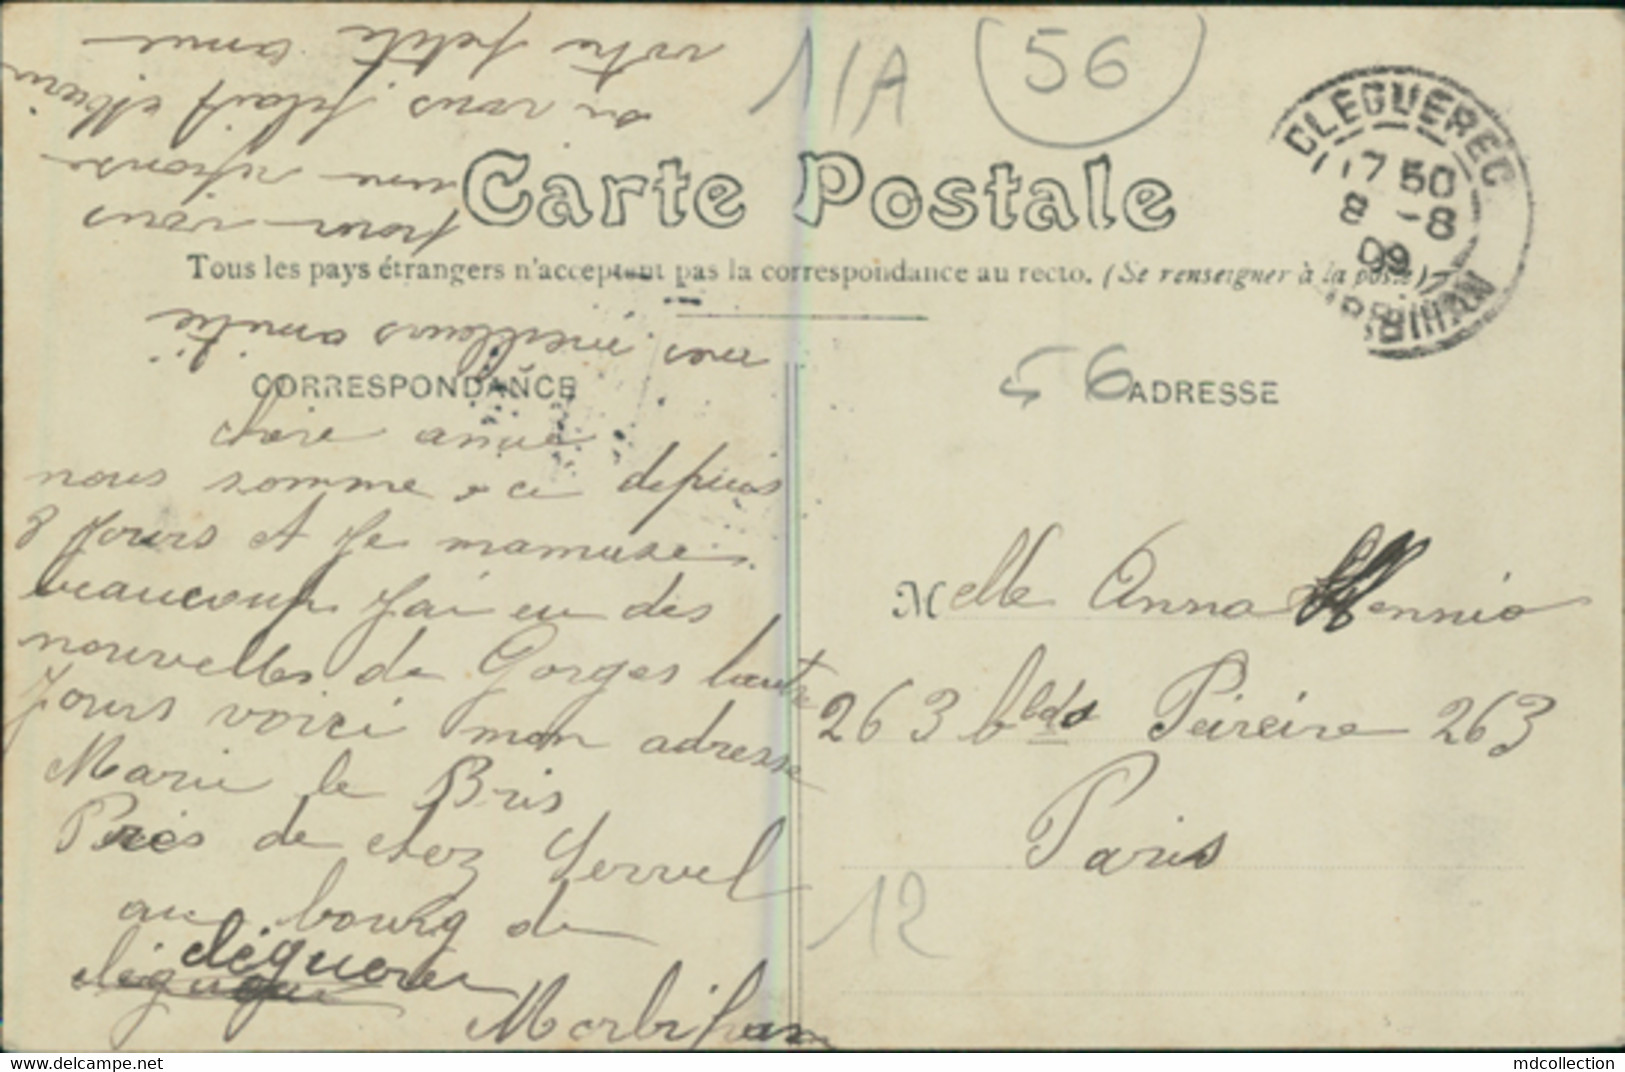 1/A
56
CLEGUEREC
17 50
8 -8
09
MORBIHAN
Carte Postale
Tous les pays étrangers n'acceptent pas la correspondance au recto. (Se renseigner à la poste)
CORRESPONDANCE
ADRESSE
6
chère amie
nous somme ici depuis
8 jours et je mamuse
beaucoup j'ai eu des
nouvelles de Gorges lautre
jours voici mon adresse
Marie le Bris
Près de chez Servel
au bourg de
cléguerec
Morbihan
mes meilleurs amitié
pour vous
une réponse
sil vous plait
votre petite amie
Melle Anna Hennio
263 blds Peireire 263
Paris
12
mdcollection